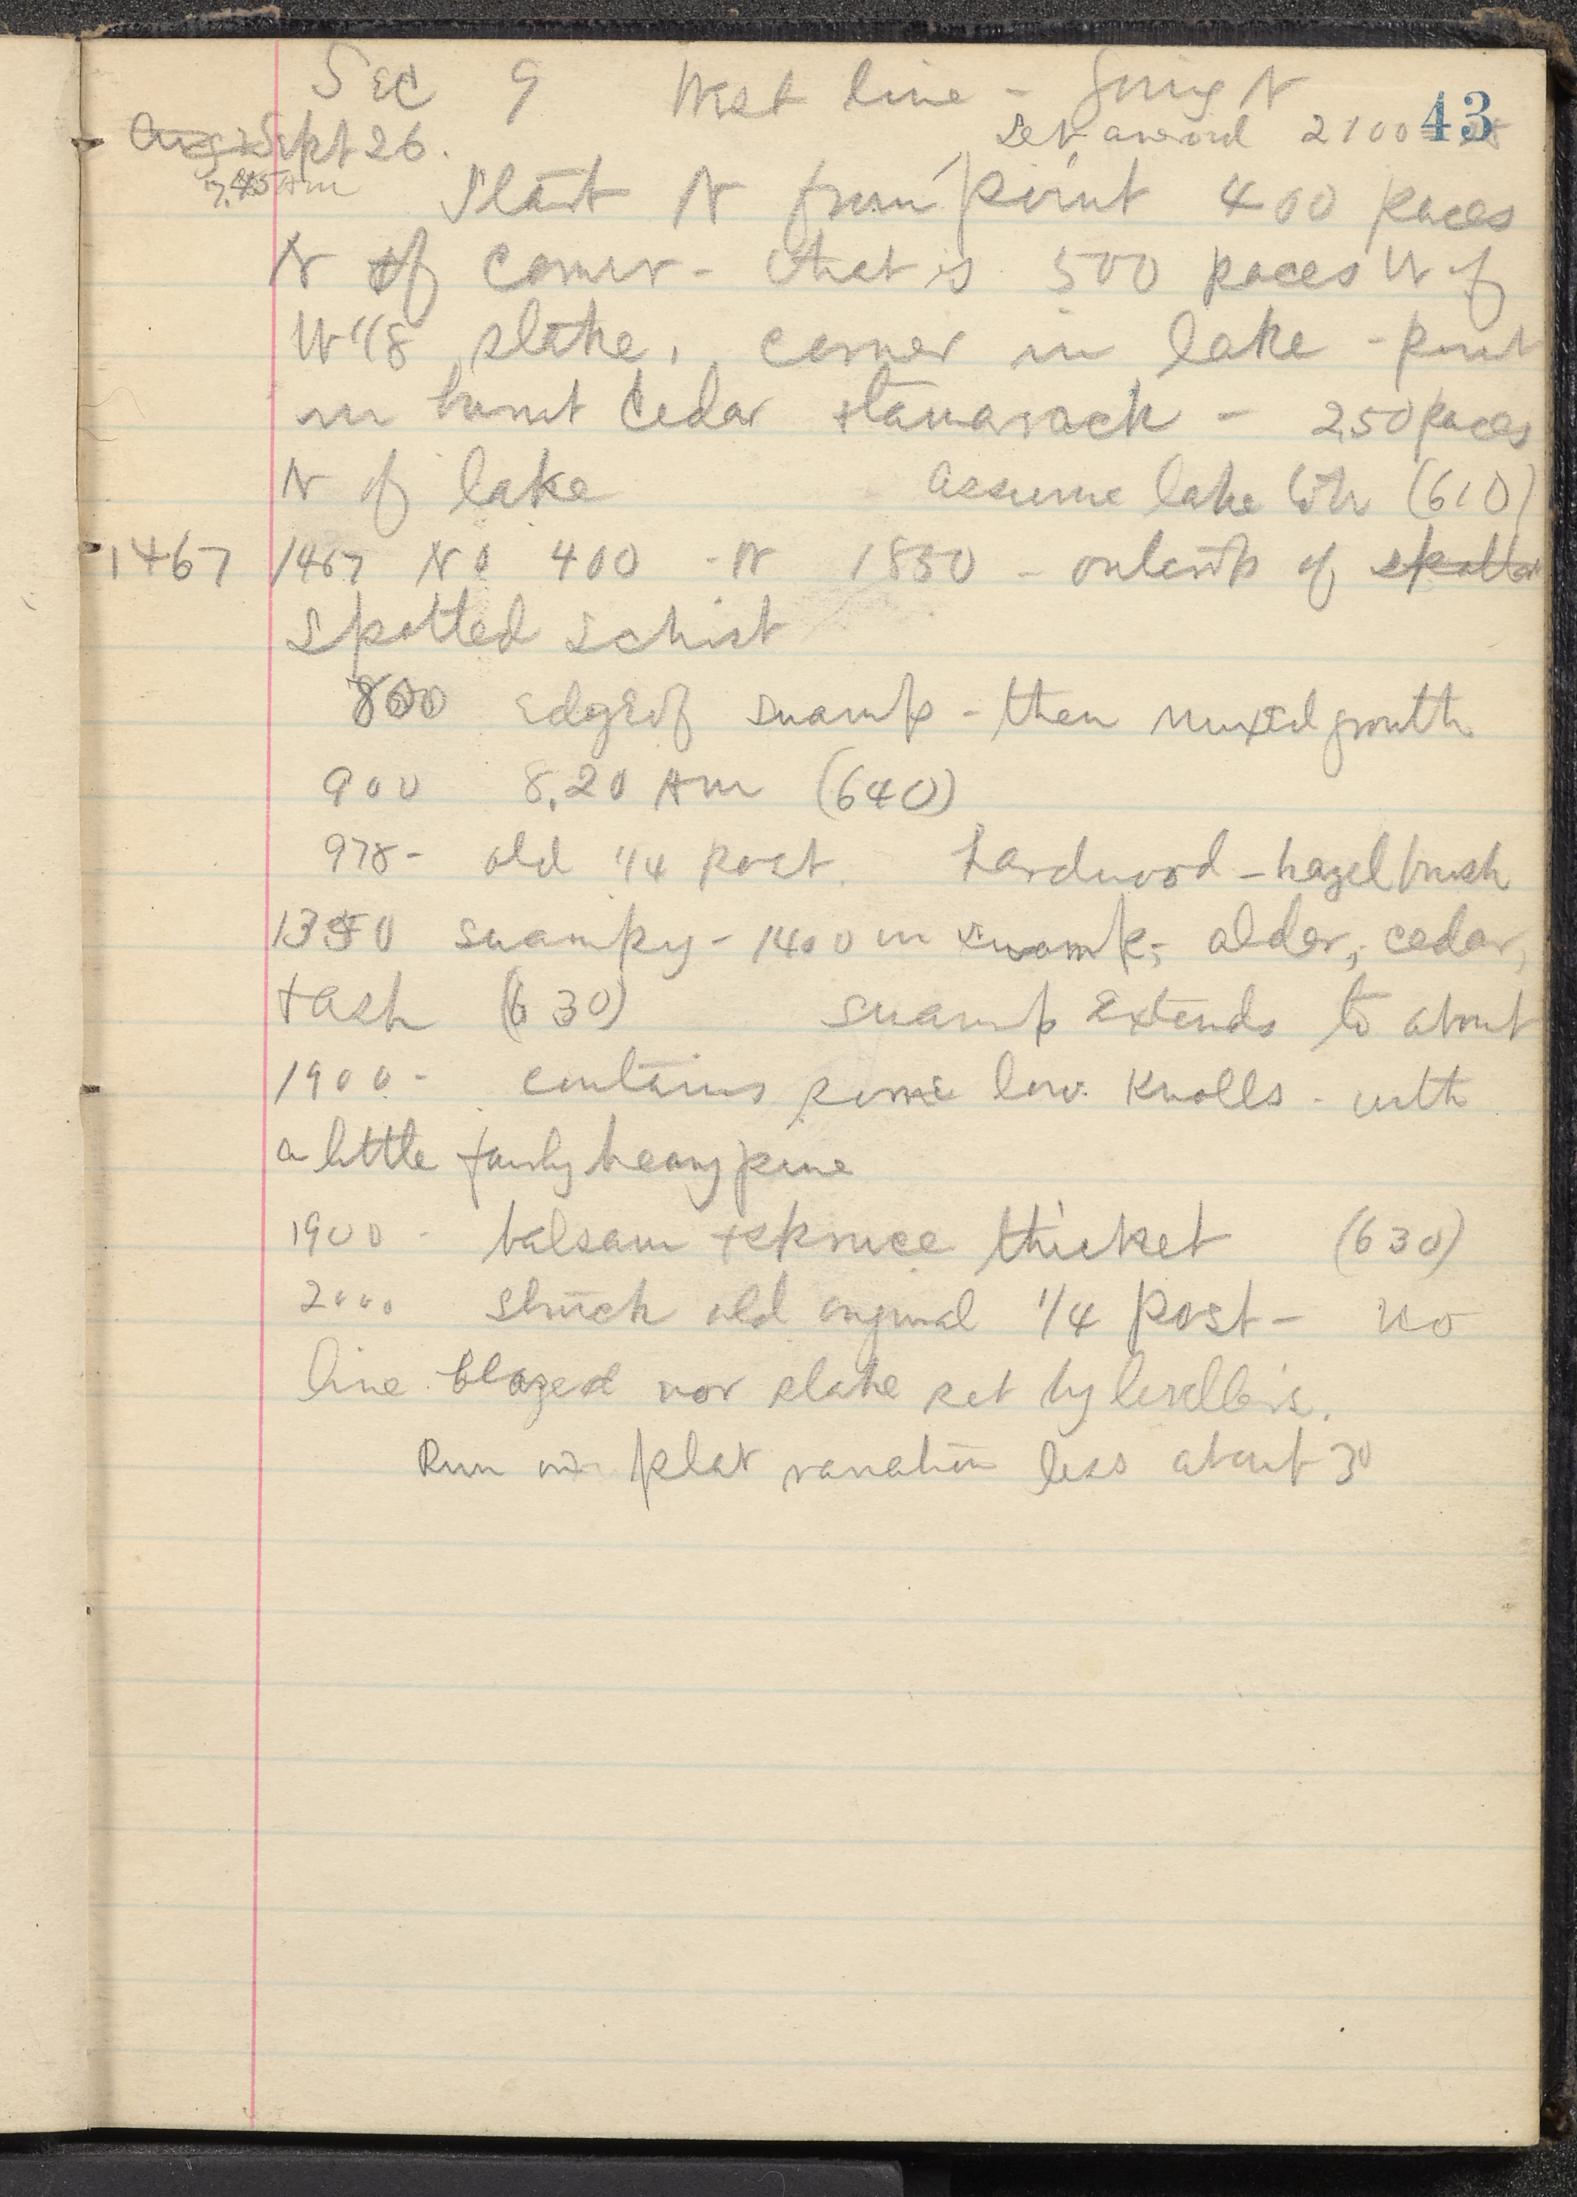 Sec 9 West line - Going N
43
Sept 26. Set aneroid 2100
7.45 AM Start N from point 400 paces
N of corner - that is 500 paces W of
W 1/8 stake. corner in lake - point
in burnt cedar + tamarack - 250 paces
N of lake assume lake lvl (610)
1467 1467 N 0 400 - W 1850 - outcrop of spotted
spotted schist
800 edge of swamp - then mixed growth
900 8.20 AM (640)
978 - old 1/4 post. hardwood - hazel brush
1350 swampy - 1400 in swamp; alder, cedar,
+ ash (630) swamp extends to about
1900 - contains some low knolls - with
a little fairly heavy pine
1900 - balsam + spruce thicket (630)
2000 struck old original 1/4 post - no
line blazed nor stake set by levellers.
Run on plat variation less about 30